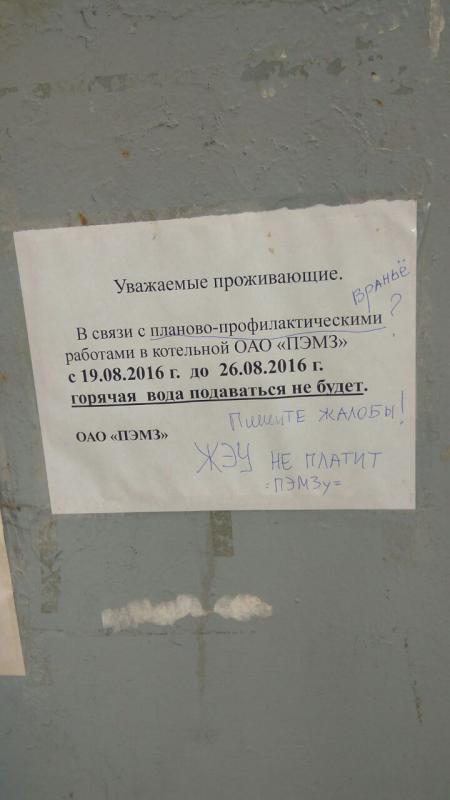 Уважаемые проживающие.
Враньё
?
В связи с планово-профилактическими
работами в котельной ОАО «ПЭМЗ»
с 19.08.2016 г. до 26.08.2016 г.
горячая вода подаваться не будет.
Пишите ЖАЛОБЫ!
ОАО «ПЭМЗ»
ЖЭУ НЕ ПЛАТИТ
=ПЭМЗу=